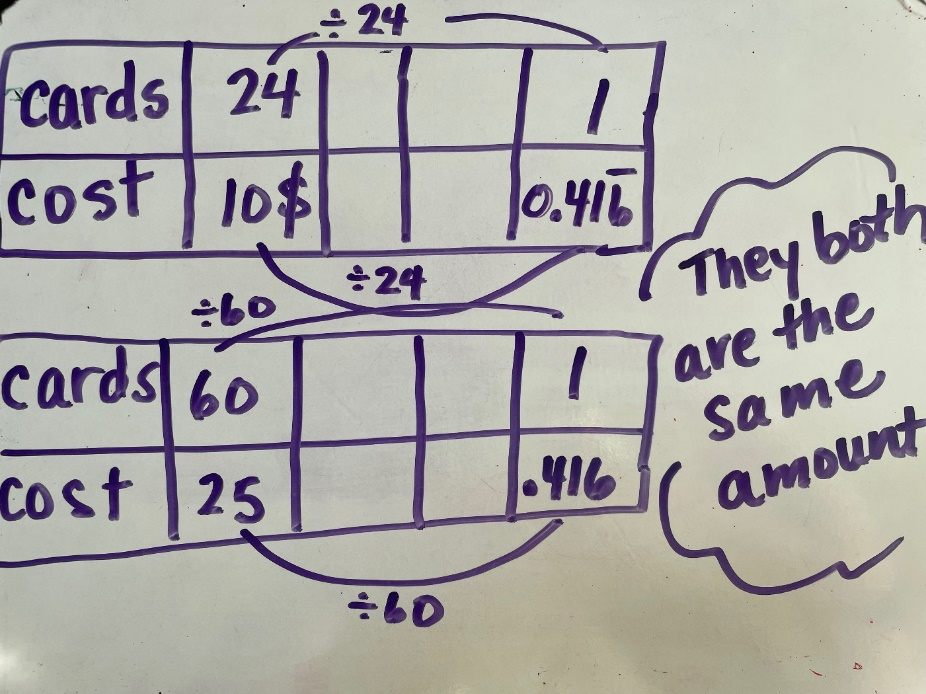 ÷ 24
cards 24 1
cost 10$ 0.416̅
÷ 24
÷60
cards 60 1
cost 25 .416
÷60
They both
are the
same
amount